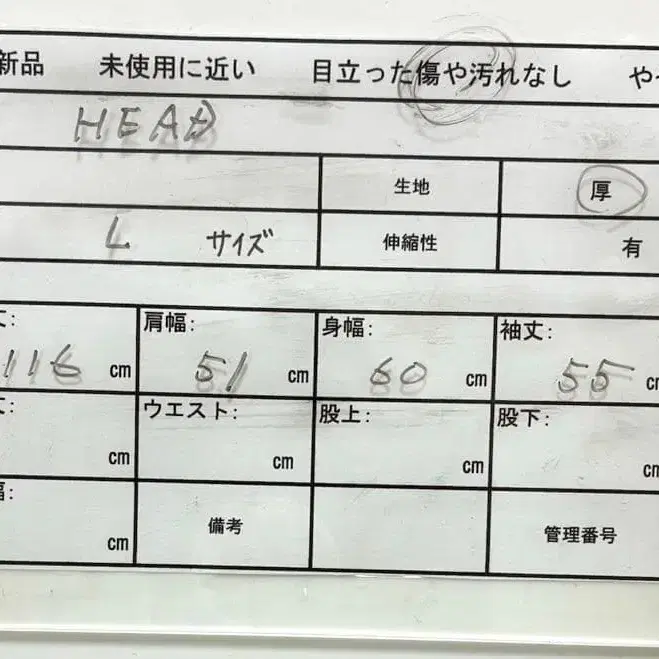 新品 未使用に近い 目立った傷や汚れなし や
HEAD
生地 厚
L サイズ 伸縮性 有
丈: 肩幅: 身幅: 袖丈:
116 cm 51 cm 60 cm 55 cm
丈: ウエスト: 股上: 股下:
cm cm cm cm
幅: 備考 管理番号
cm